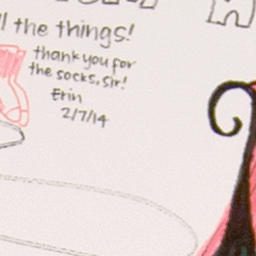 the things!
thank you for
the socks, sir!
Erin
2/7/14